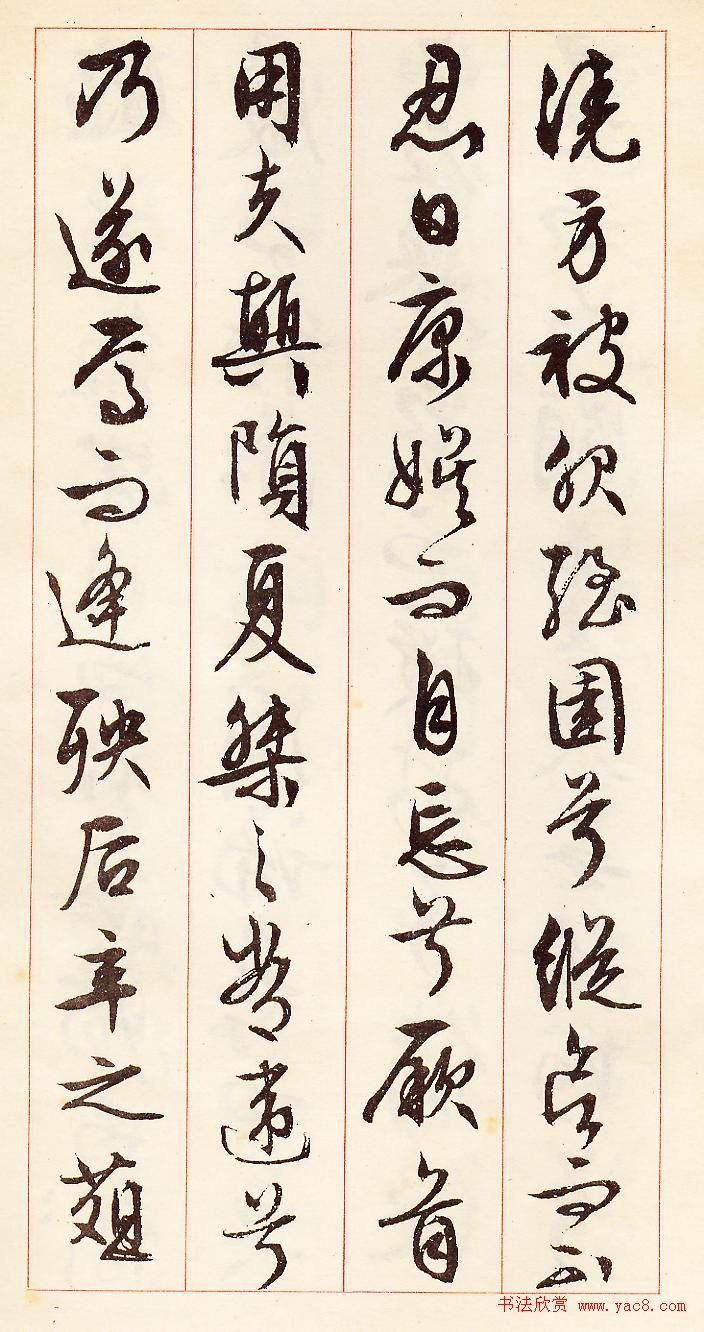 澆身被服強圉兮縱欲而不
忍日康娱而自忘兮厥首
用夫顛隕夏桀之常違兮
乃遂焉而逢殃后辛之菹
书法欣赏 www.yac8.com